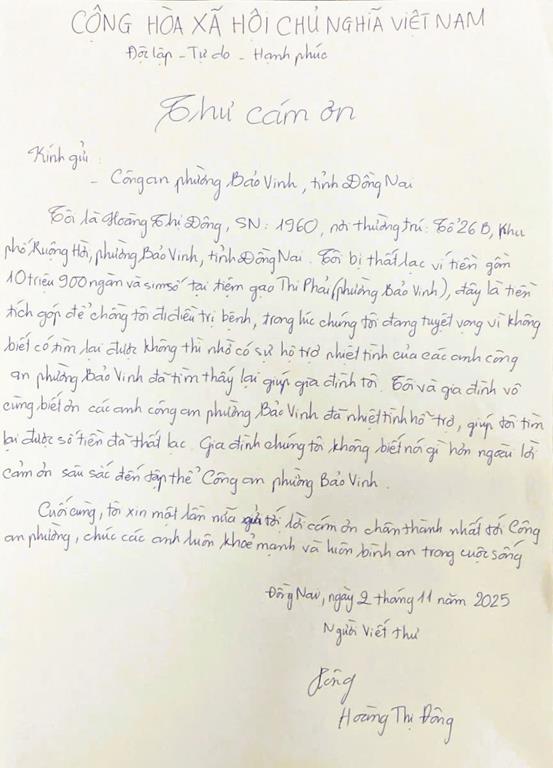 CỘNG HÒA XÃ HỘI CHỦ NGHĨA VIỆT NAM
Độc lập - Tự do - Hạnh phúc
Thư cám ơn
Kính gửi :
- Công an phường Bảo Vinh, tỉnh Đồng Nai
Tôi là Hoàng Thị Đông, SN: 1960, nơi thường trú: Tổ 26B, Khu
phố Ruộng Hời, phường Bảo Vinh, tỉnh Đồng Nai. Tôi bị thất lạc ví tiền gồm
10 triệu 900 ngàn và sim số tại tiệm gạo Thi Phải (phường Bảo Vinh), đây là tiền
tích góp để chồng tôi đi điều trị bệnh, trong lúc chúng tôi đang tuyệt vọng vì không
biết có tìm lại được không thì nhờ có sự hỗ trợ nhiệt tình của các anh công
an phường Bảo Vinh đã tìm thấy lại giúp gia đình tôi. Tôi và gia đình vô
cùng biết ơn các anh công an phường Bảo Vinh đã nhiệt tình hỗ trợ, giúp tôi tìm
lại được số tiền đã thất lạc. Gia đình chúng tôi không biết nói gì hơn ngoài lời
cảm ơn sâu sắc đến tập thể Công an phường Bảo Vinh.
Cuối cùng, tôi xin một lần nữa gửi tới lời cám ơn chân thành nhất tới Công
an phường, chúc các anh luôn khoẻ mạnh và luôn bình an trong cuộc sống
Đồng Nai, ngày 2 tháng 11 năm 2025
Người viết thư
Đông
Hoàng Thị Đông